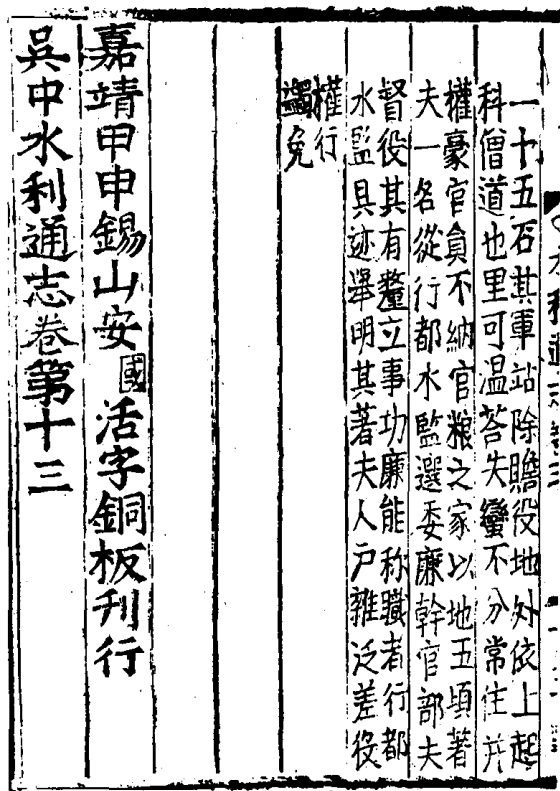 一十五石其軍站除贍役地外依上起
科僧道也里可温荅失蠻不分常住并
權豪官貟不納官粮之家以地五頃著
夫一名從行都水監選委廉幹官部夫
督役其有釐立事功廉能称職者行都
水監具迹舉明其著夫人户雜泛差役
權行
蠲免
嘉靖甲申錫山安國活字銅板刊行
吳中水利通志卷第十三